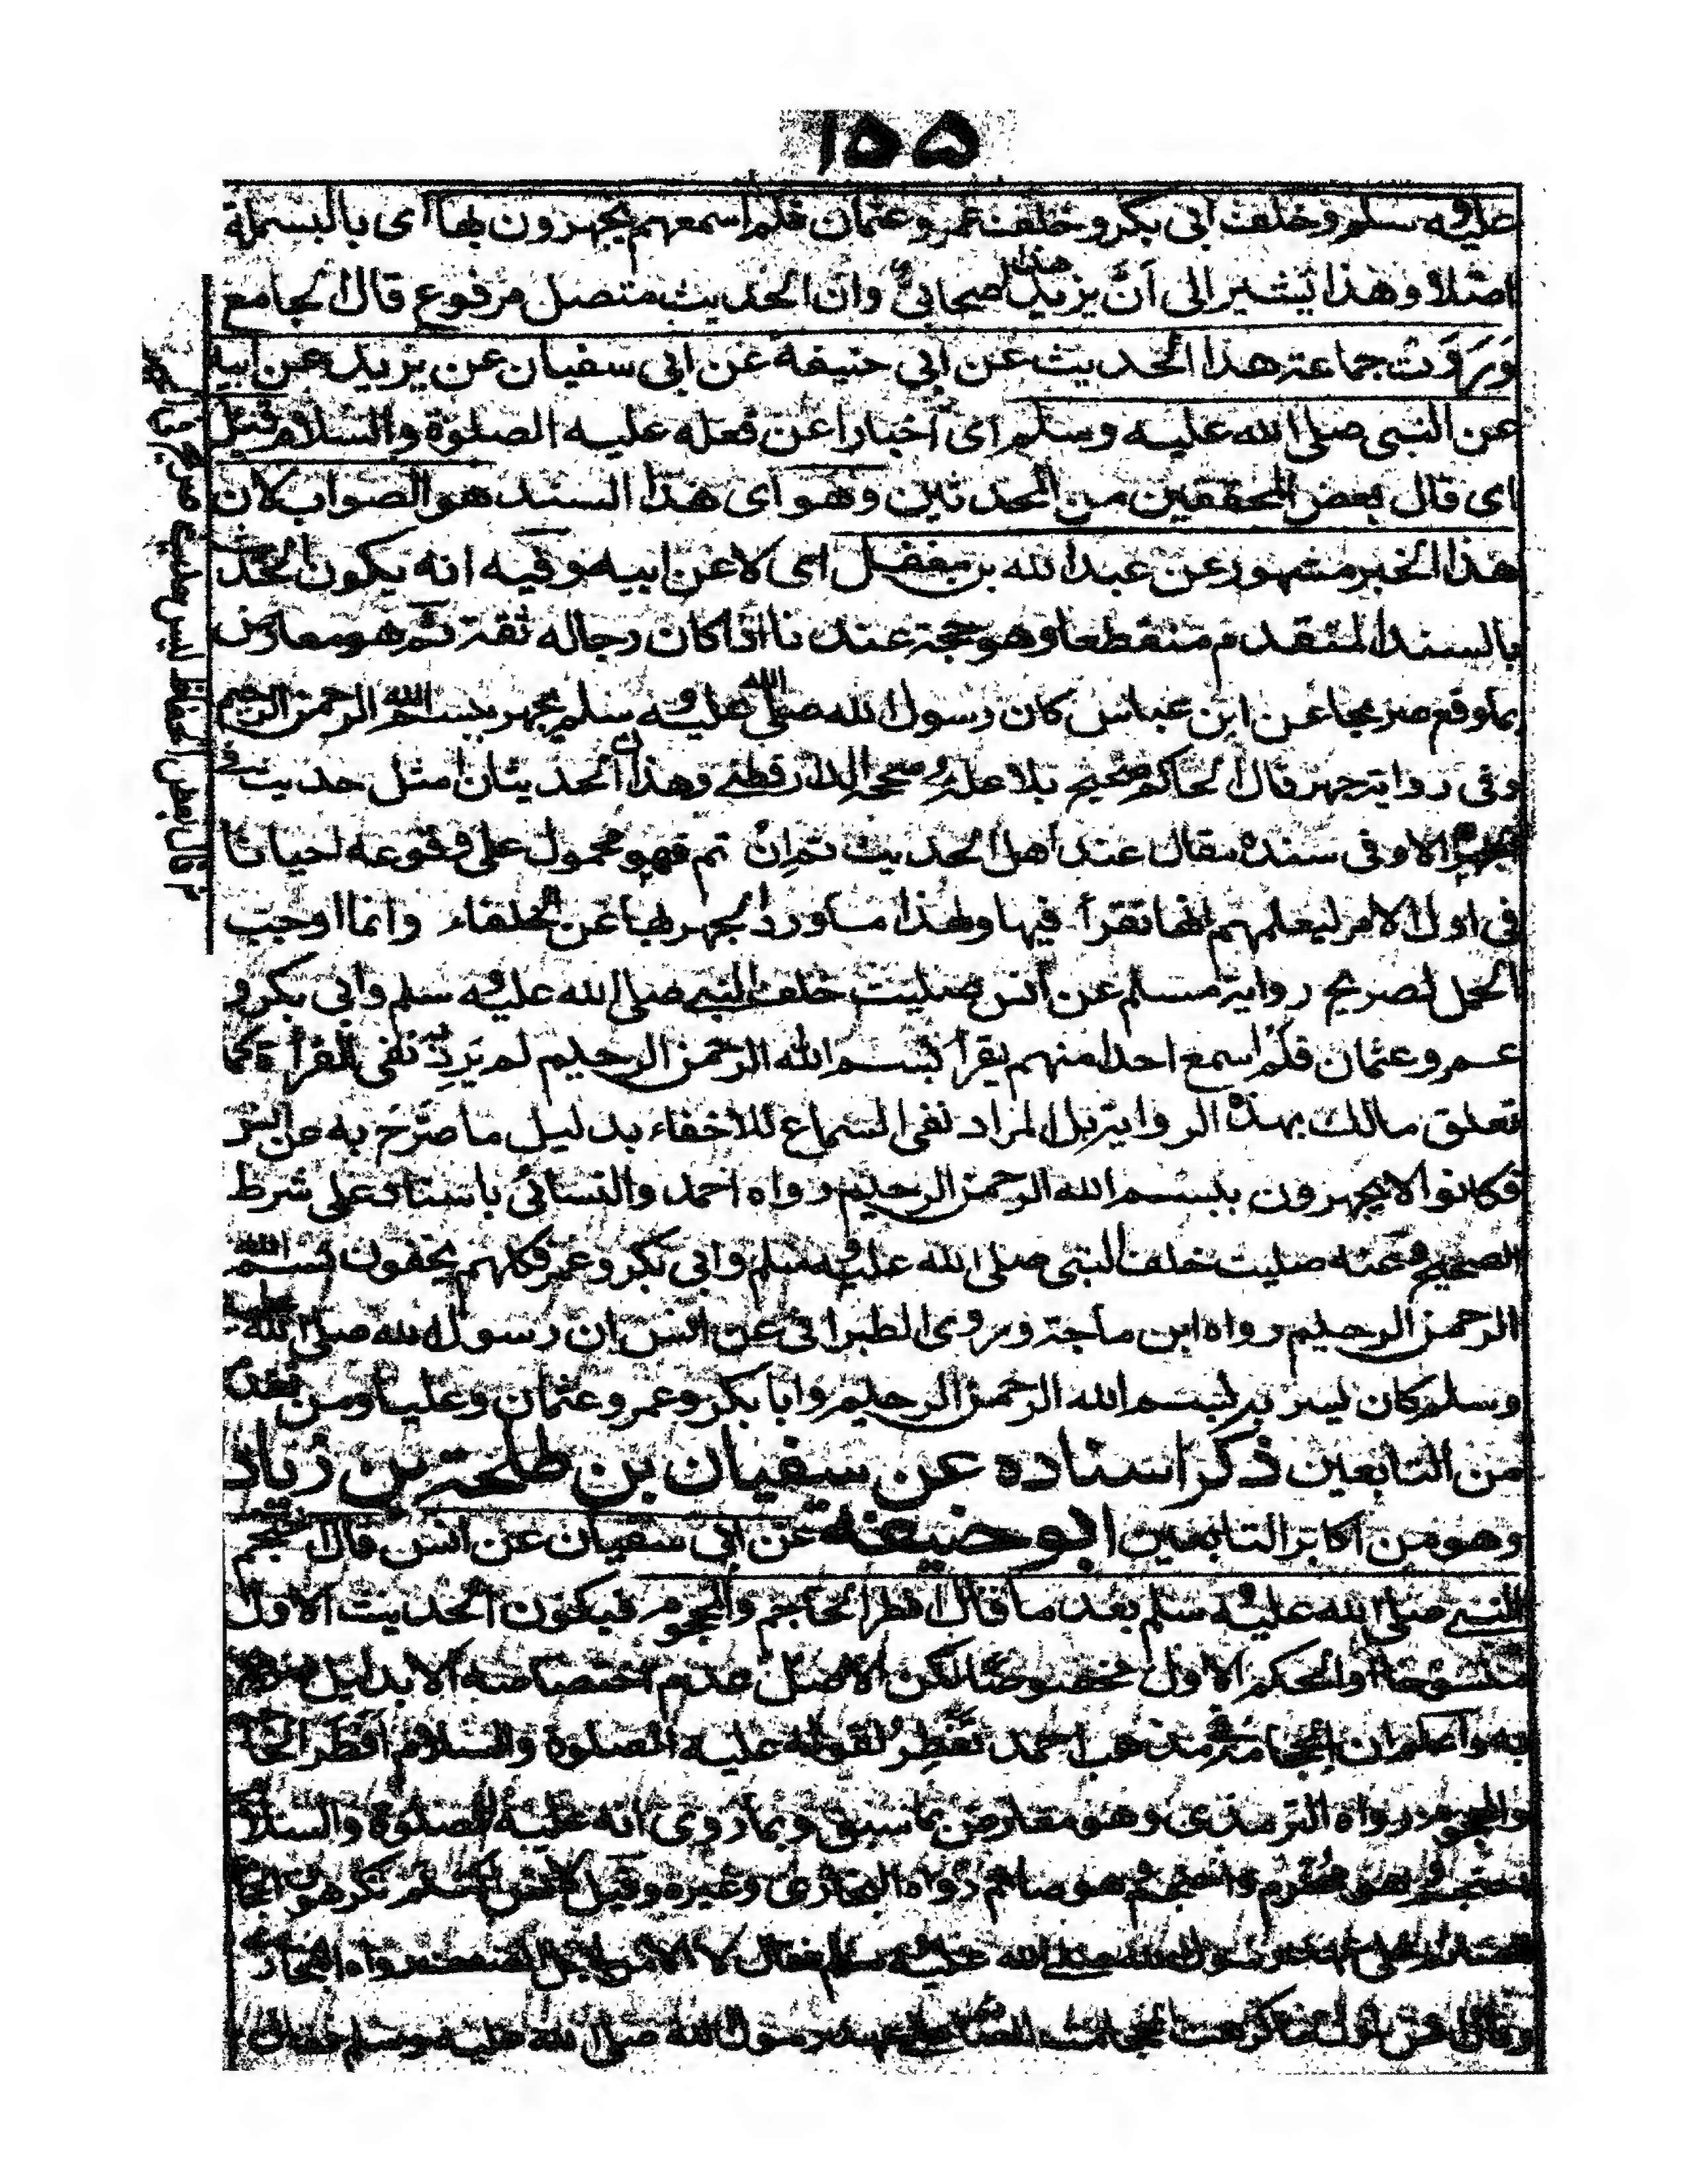 ١٥٥
عليه وسلم وخلف ابى بكر وخلف عمر وعثمان فلم اسمعهم يجهرون بها اى بالبسملة
اصلا وهذا يشير الى ان يزيد هذا صحابي وان الحديث متصل مرفوع قال الجامع
وَرَوَتْ جماعة هذا الحديث عن ابي حنيفة عن ابى سفيان عن يزيد عن ابيه
عن النبى صلى الله عليه وسلم اى اخبارا عن فعله عليه الصلوة والسلام قيل
اى قال بعض المحققين من المحدثين وهو اى هذا السند هو الصواب لان
هذا الخبر مشهور عن عبد الله بن مغفل اى لا عن ابيه وفيه انه يكون الحديث
بالسند المتقدم منقطعا وهو حجة عندنا اذا كان رجاله ثقة ثم هو معارض
بما وقع صريحا عن ابن عباس كان رسول الله صلى الله عليه وسلم يجهر ببسم الله الرحمن الرحيم
وفى رواية جهر قال الحاكم صحيح بلا علة وصححه الدارقطنے وهذان الحديثان امثل حديث فے
الجهر الا وفى سنده مقال عند اهل الحديث ثم ان تم فهو محمول على وقوعه احيانا
فى اول الامر ليعلمهم انها تقرأ فيها ولهذا ما ورد الجهر بها عن الخلفاء وانما اوجب
الحمل لصريح رواية مسلم عن انس صليت خلف النبے صلى الله عليه وسلم وابى بكر و
عمر وعثمان فلم اسمع احدا منهم يقرأ بسم الله الرحمن الرحيم لم يرد نفى القرأة كما
تعلق مالك بهذه الرواية بل المراد نفى السماع للاخفاء بدليل ما صرح به عن انس
فكانوا لا يجهرون ببسم الله الرحمن الرحيم رواه احمد والنسائي باسناد على شرط
الصحيح وعنه صليت خلف النبى صلى الله عليه وسلم وابى بكر وعمر فكلهم يخفون بسم الله
الرحمن الرحيم رواه ابن ماجة وروى الطبرانى عن انس ان رسول الله صلى الله عليه
وسلم كان يسر ببسم الله الرحمن الرحيم وابا بكر وعمر وعثمان وعليا ومن تقدم
من التابعين ذكر اسناده عن سفيان بن طلحة بن زياد
وهو من اكابر التابعين ابو حنيفة عن ابى سفيان عن انس قال احتجم
النبے صلى الله عليه وسلم بعد ما قال افطر الحاجم والمحجوم فيكون الحديث الاول
منسوخا او الحكم الاول مخصوصا لكن الاصل عدم اختصاصه الا بدليل
به واعلم ان الحجامة فى مذهب احمد تفطر لقوله عليه الصلوة والسلام افطر الحاجم
والمحجوم رواه الترمذى وهو معارض بما سبق وبما روى انه عليه الصلوة والسلام
احتجم وهو محرم واحتجم وهو صائم رواه البخارى وغيره وقيل لانس اكنتم تكرهون الحجامة
على عهد رسول الله صلے الله عليه وسلم فقال لا الا من اجل الضعف رواه البخارى
عهد رسول الله صلى الله عليه وسلم
ثم قال بعض الحفاظ ليس حديث صريح فى